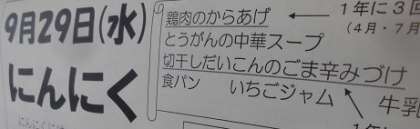 9月29日(水)
にんにく
鶏肉のからあげ
とうがんの中華スープ
切干しだいこんのごま辛みづけ
食パン いちごジャム
1年に3回
(4月・7月
牛乳